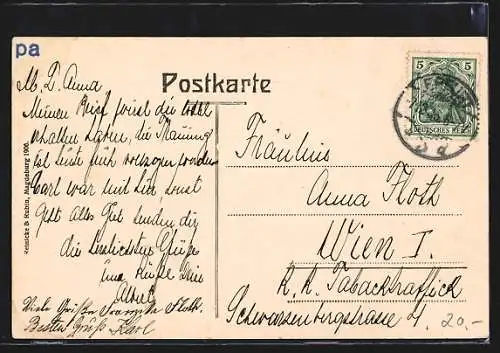 pa
M. L. Anna
Postkarte
Meinen Brief wirst du wohl
erhalten haben, die Trauung
ist heute früh vollzogen worden
Carl war mit hier, sonst
geht alles Gut senden dir
die herzlichsten Grüße
und Küsse
Albert
Viele Grüße Franziska Floth
Besten Gruß Karl
Reinicke & Rubin, Magdeburg 1906.
5 5
DEUTSCHES REICH
Fräulein
Anna Floth
Wien I.
k. k. Tabacktraffick
Schwarzenbergstrasse 4.
20.-